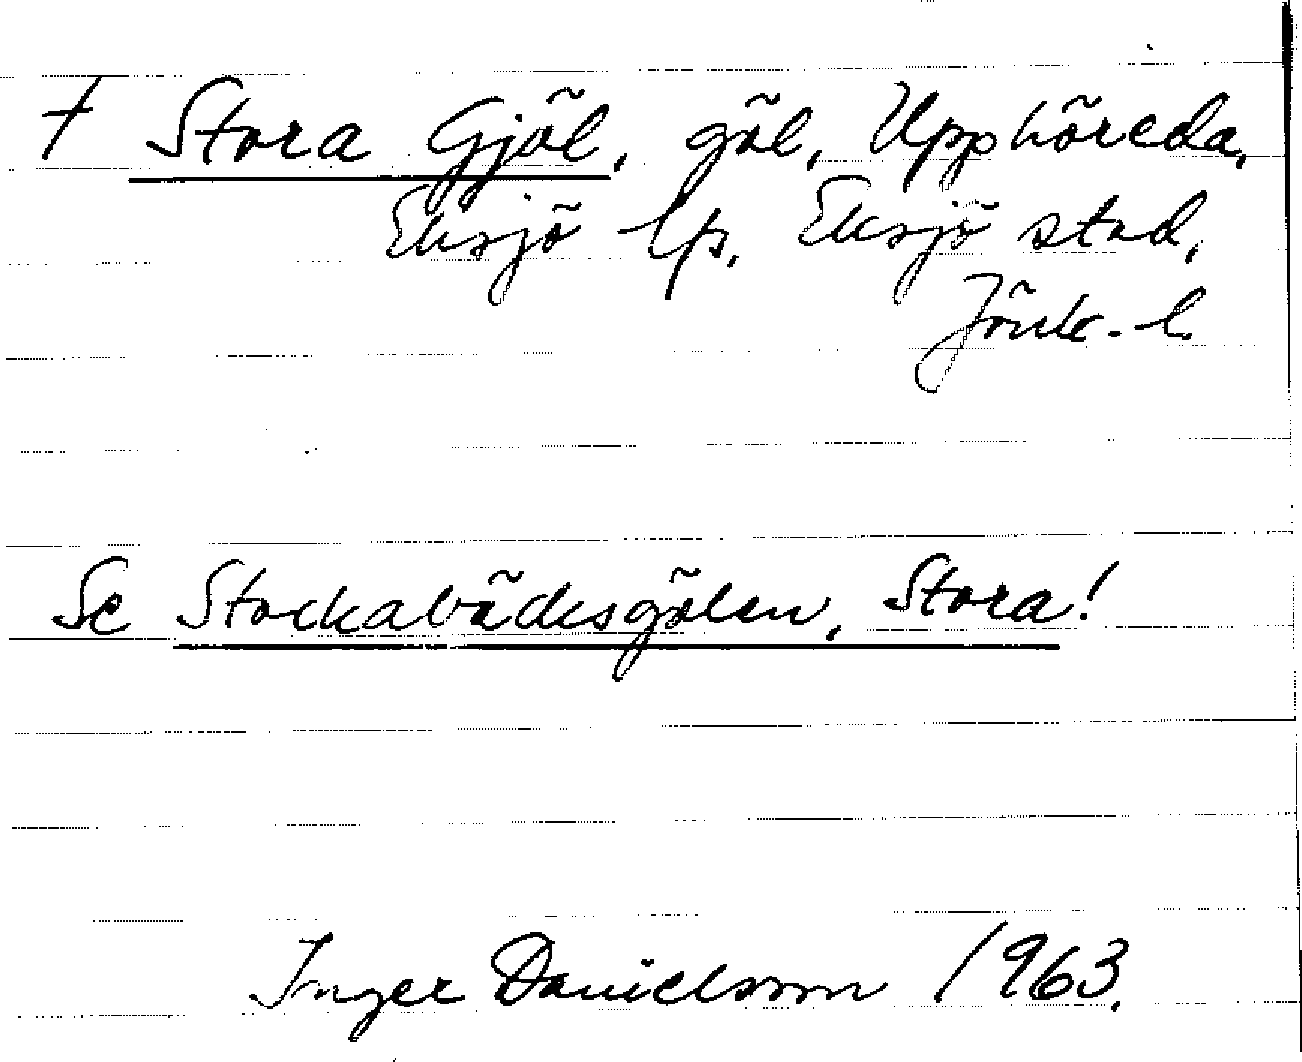 † Stora Gjöl, göl, Upphöreda,
Eksjö lfs, Eksjö stad,
Jönk. l.
Se Stockabäcksgölen, Stora!
Inger Danielsson 1963.